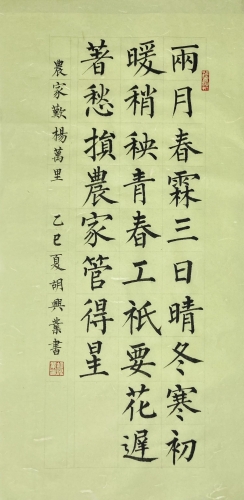 兩月春霖三日晴冬寒初
暖稍秧青春工祇要花遲
著愁損農家管得星
農家歎楊萬里 乙巳夏胡興業書